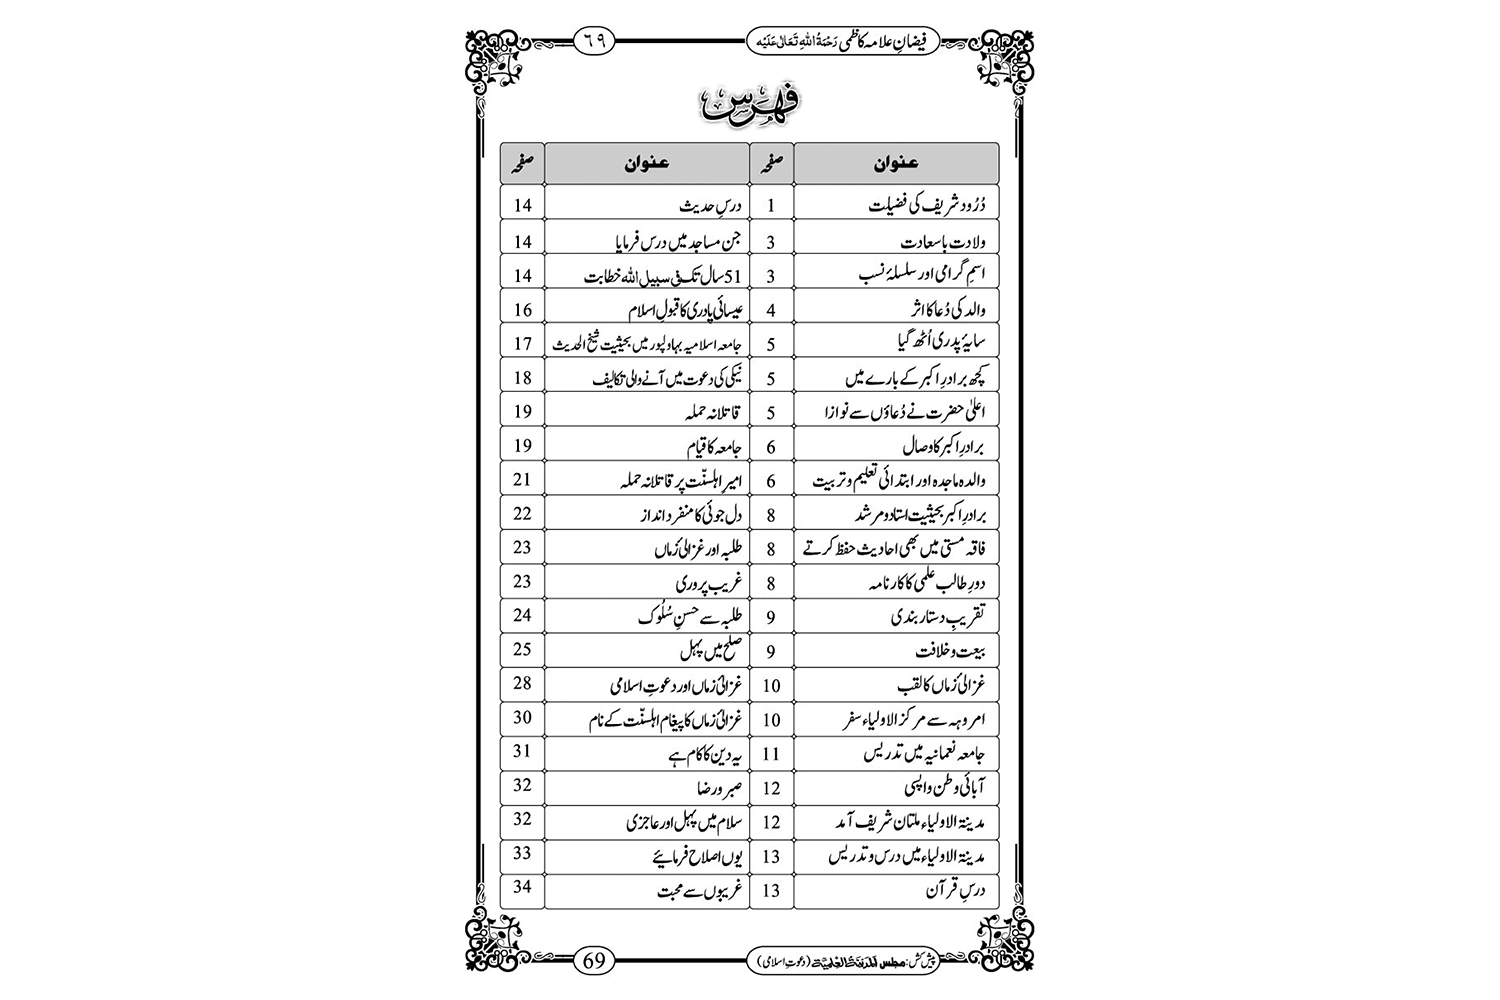 فیضانِ علامہ کاظمی رَحْمَۃُ اللہِ تَعَالٰی عَلَیْہ ٦٩
فہرس
عنوان صفحہ عنوان صفحہ
دُرُود شریف کی فضیلت 1 درسِ حدیث 14
ولادت باسعادت 3 جن مساجد میں درس فرمایا 14
اسمِ گرامی اور سلسلۂ نسب 3 51 سال تک فی سبیل اللہ خطابت 14
والد کی دُعا کا اثر 4 عیسائی پادری کا قبولِ اسلام 16
سایۂ پدری اُٹھ گیا 5 جامعہ اسلامیہ بہاولپور میں بحیثیت شیخ الحدیث 17
کچھ برادرِ اکبر کے بارے میں 5 نیکی کی دعوت میں آنے والی تکالیف 18
اعلیٰ حضرت نے دُعاؤں سے نوازا 5 قاتلانہ حملہ 19
برادرِ اکبر کا وصال 6 جامعہ کا قیام 19
والدہ ماجدہ اور ابتدائی تعلیم و تربیت 6 امیرِ اہلسنّت پر قاتلانہ حملہ 21
برادرِ اکبر بحیثیت استاد و مرشد 8 دل جوئی کا منفرد انداز 22
فاقہ مستی میں بھی احادیث حفظ کرتے 8 طلبہ اور غزالیٔ زماں 23
دورِ طالب علمی کا کارنامہ 8 غریب پروری 23
تقریبِ دستار بندی 9 طلبہ سے حسنِ سُلُوک 24
بیعت و خلافت 9 صلح میں پہل 25
غزالیٔ زماں کا لقب 10 غزالیٔ زماں اور دعوتِ اسلامی 28
امروہہ سے مرکز الاولیاء سفر 10 غزالیٔ زماں کا پیغام اہلسنّت کے نام 30
جامعہ نعمانیہ میں تدریس 11 یہ دین کا کام ہے 31
آبائی وطن واپسی 12 صبر و رضا 32
مدینۃ الاولیاء ملتان شریف آمد 12 سلام میں پہل اور عاجزی 32
مدینۃ الاولیاء میں درس و تدریس 13 یوں اصلاح فرمایئے 33
درسِ قرآن 13 غریبوں سے محبت 34
پیش کش: مجلس المدینۃ العلمیۃ (دعوتِ اسلامی) 69